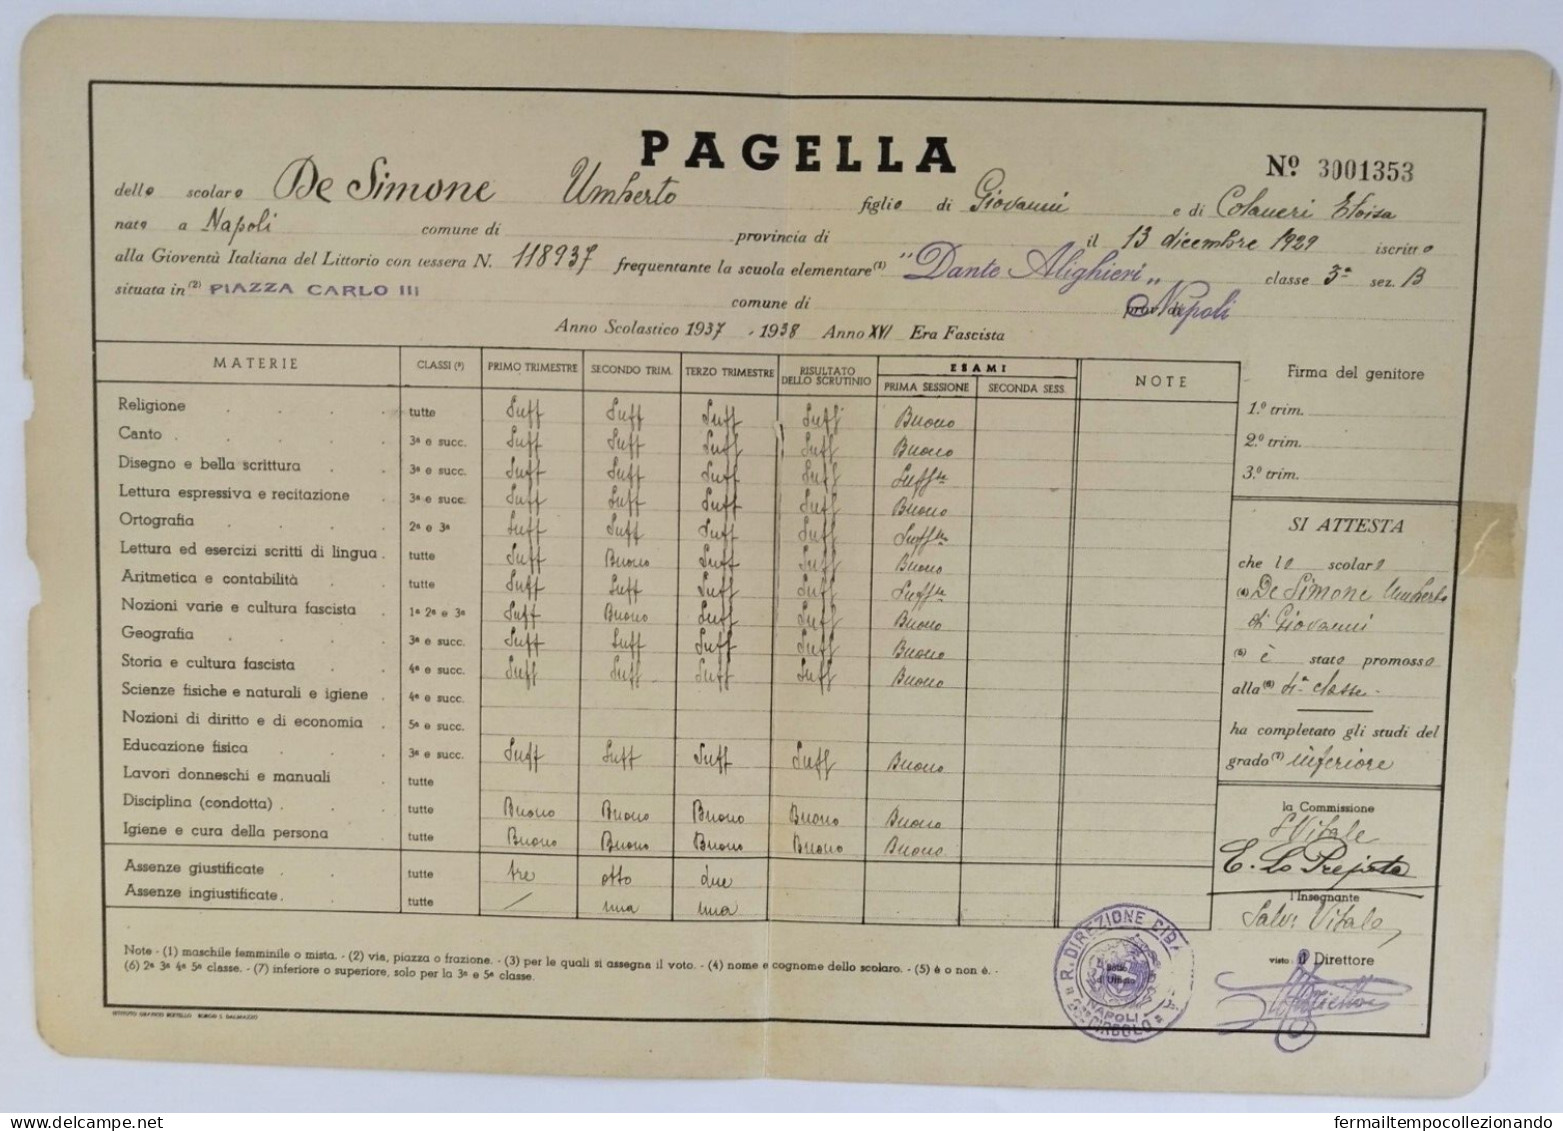 PAGELLA
Nº 3001353
dello scolaro De Simone Umberto figlio di Giovanni e di Colaneri Eloisa
nato a Napoli comune di provincia di il 13 dicembre 1929 iscritto
alla Gioventù Italiana del Littorio con tessera N. 118937 frequentante la scuola elementare (1) "Dante Alighieri" classe 3ª sez. B
situata in (2) PIAZZA CARLO III comune di prov. di Napoli
Anno Scolastico 1937 - 1938 Anno XVI Era Fascista
MATERIE CLASSI (3) PRIMO TRIMESTRE SECONDO TRIM. TERZO TRIMESTRE RISULTATO DELLO SCRUTINIO ESAMI PRIMA SESSIONE SECONDA SESS. NOTE
Religione tutte Suff Suff Suff Suff Buono
Canto 3ª e succ. Suff Suff Suff Suff Buono
Disegno e bella scrittura 3ª e succ. Suff Suff Suff Suff Suff.te
Lettura espressiva e recitazione 3ª e succ. Suff Suff Suff Suff Buono
Ortografia 2ª e 3ª Suff Suff Suff Suff Suff.te
Lettura ed esercizi scritti di lingua tutte Suff Buono Suff Suff Buono
Aritmetica e contabilità tutte Suff Suff Suff Suff Suff.te
Nozioni varie e cultura fascista 1ª 2ª e 3ª Suff Buono Suff Suff Buono
Geografia 3ª e succ. Suff Suff Suff Suff Buono
Storia e cultura fascista 4ª e succ. Suff Suff Suff Suff Buono
Scienze fisiche e naturali e igiene 4ª e succ.
Nozioni di diritto e di economia 5ª e succ.
Educazione fisica 3ª e succ. Suff Suff Suff Suff Buono
Lavori donneschi e manuali tutte
Disciplina (condotta) tutte Buono Buono Buono Buono Buono
Igiene e cura della persona tutte Buono Buono Buono Buono Buono
Assenze giustificate tutte tre otto due
Assenze ingiustificate tutte / una una
Note - (1) maschile femminile o mista. - (2) via, piazza o frazione. - (3) per le quali si assegna il voto. - (4) nome e cognome dello scolaro. - (5) è o non è. -
(6) 2ª 3ª 4ª 5ª classe. - (7) inferiore o superiore, solo per la 3ª e 5ª classe.
ISTITUTO GRAFICO BERTELLO BORGO S. DALMAZZO
Firma del genitore
1.º trim.
2.º trim.
3.º trim.
SI ATTESTA
che lo scolaro
(4) De Simone Umberto
di Giovanni
(5) è stato promosso
alla (6) 4ª classe.
ha completato gli studi del
grado (7) inferiore
la Commissione
S Vitale
E. Lo Prejato
l'Insegnante
Salv. Vitale
visto: Il Direttore
R. DIREZIONE
Bollo
d'Ufficio
NAPOLI
CIRCOLO
fermailtempocollezionando